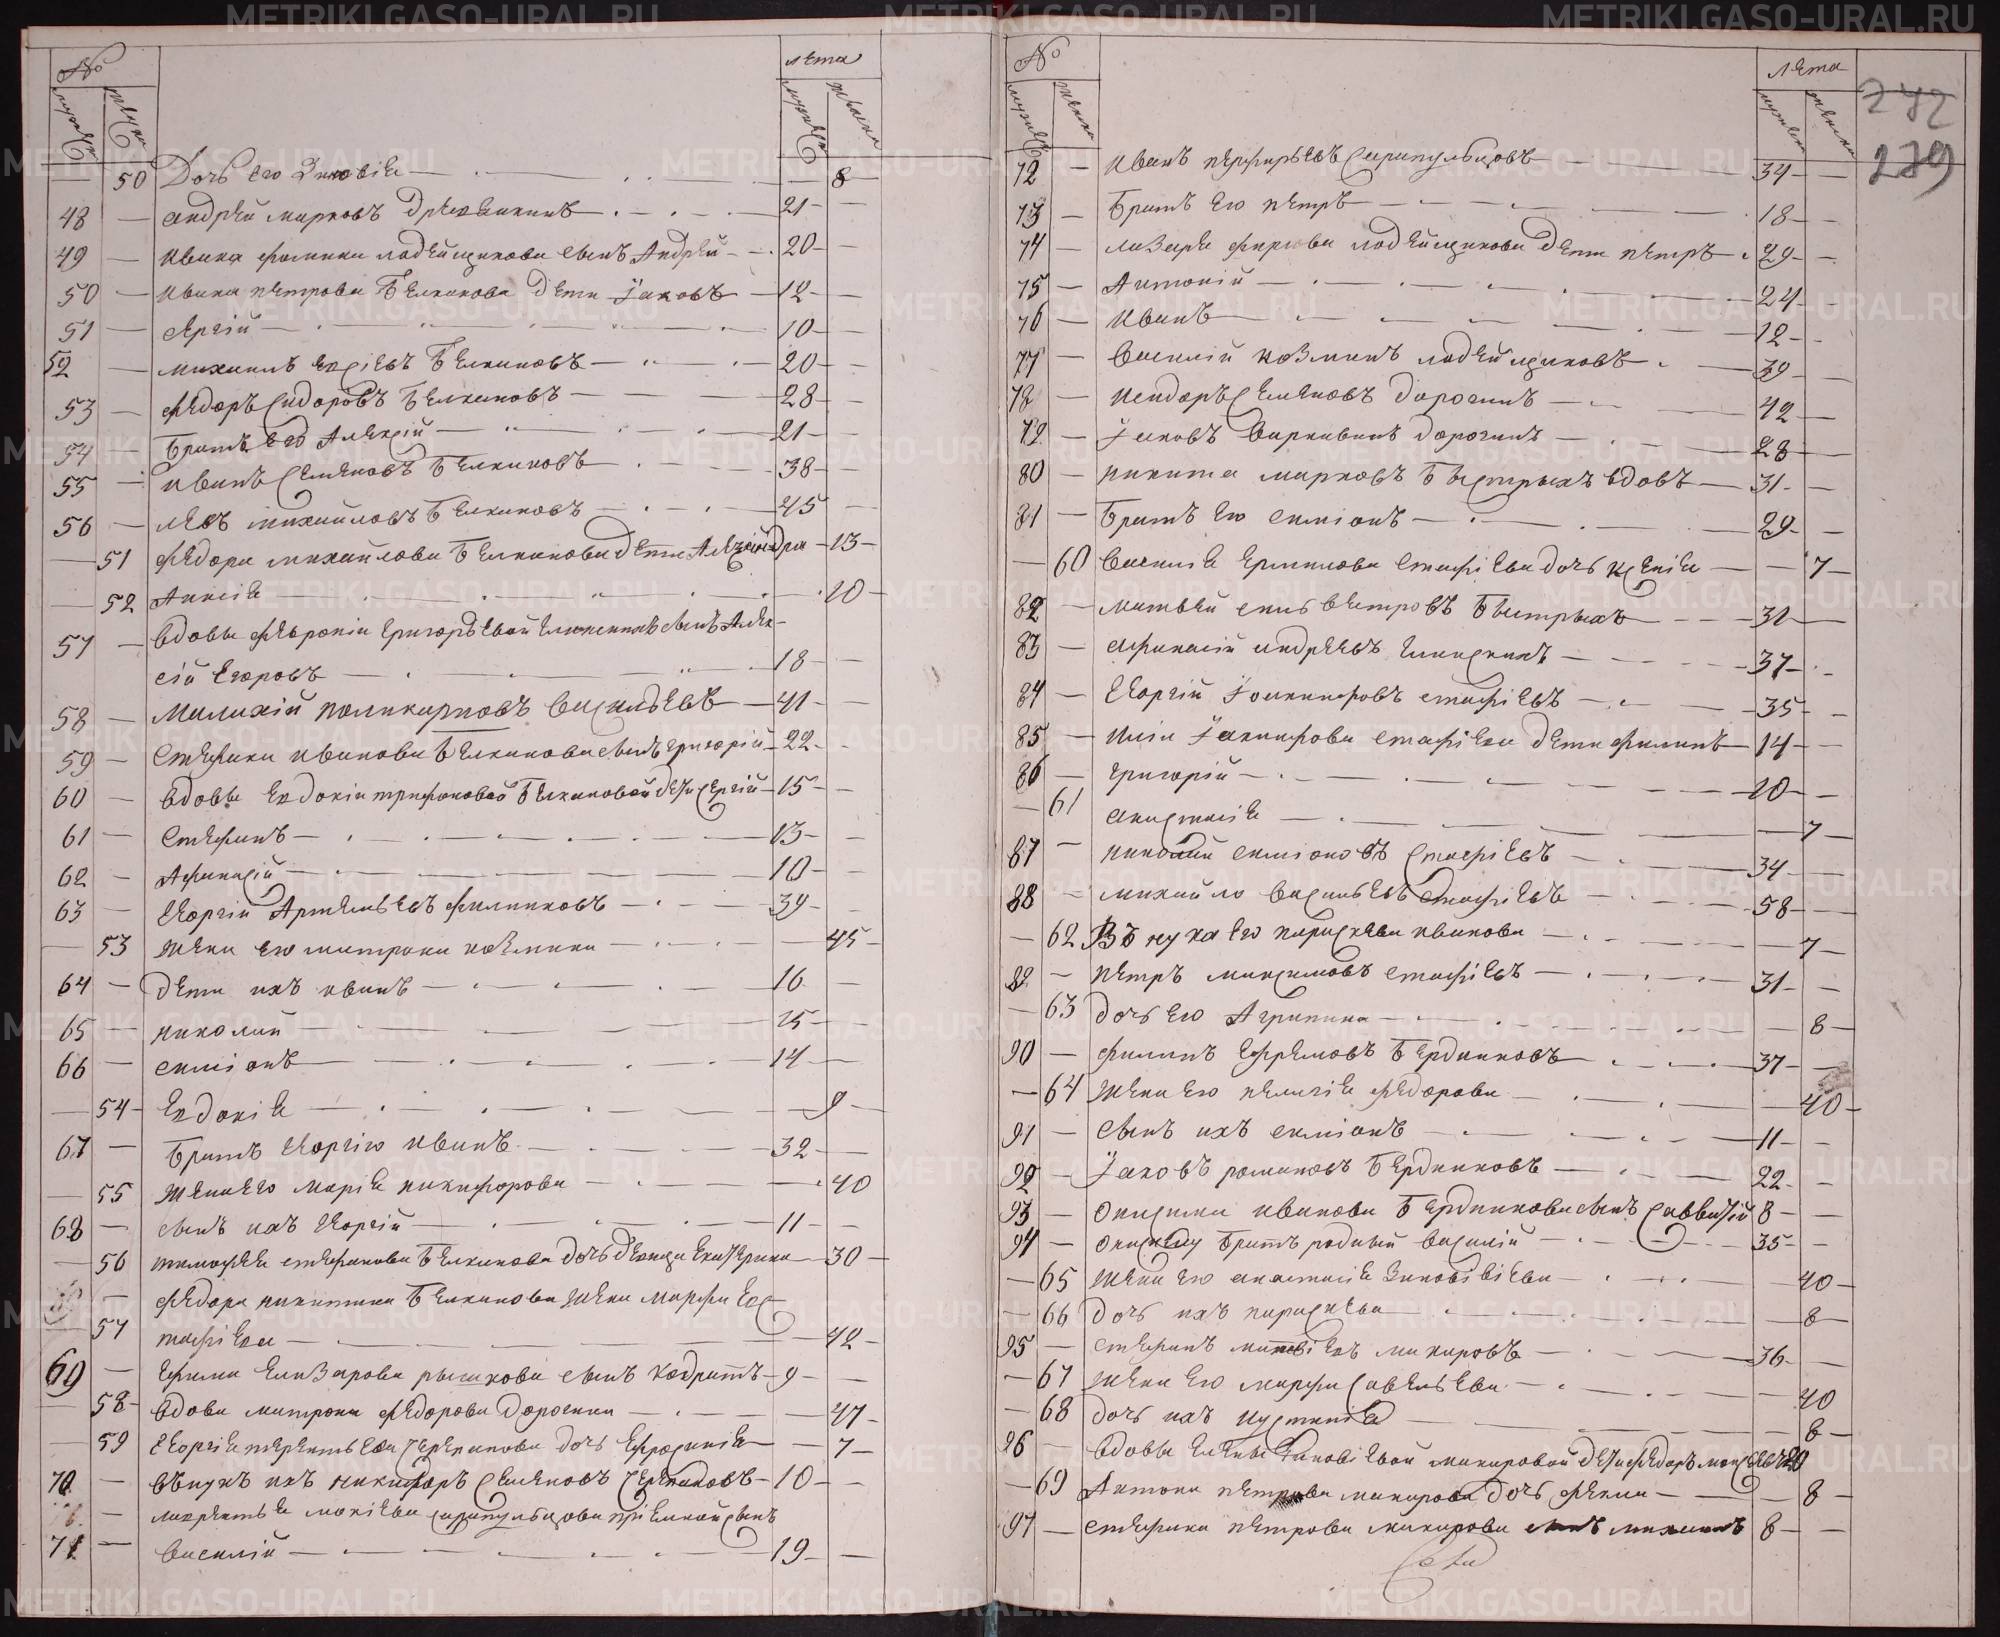 № лета
мужеск женска мужеск женска
50 Дочь его Зиновія 8
48 Андрей Марковъ 21
49 Ивана Фомина Ладейщикова сынъ Андрей 20
50 Ивана Петрова Белкинова дети Іаковъ 12
51 Сергій 10
52 Михаилъ Белкиновъ 20
53 Федоръ Сидоровъ Белкиновъ 28
54 Братъ его Алексій 21
55 Иванъ Семеновъ Белкиновъ 38
56 Левъ Михайловъ Белкиновъ 45
51 Федора Михайлова Белкинова дети Александра 13
52 Анисія 10
57 Вдовы Февроніи Григорьевой сынъ Алек-
сій Егоровъ 18
58 Малахій Поликарповъ Васильевъ 41
59 Стефана Иванова Белкинова сынъ Григорій 22
60 Вдовы Евдокіи Трифоновой Белкиновой дети Сергій 15
61 Стефанъ 13
62 Афанасій 10
63 Георгій Артемьевъ Филиповъ 39
53 Жена его Матрона Козмина 45
64 Дети ихъ Иванъ 16
65 Николай 15
66 Симіонъ 14
54 Евдокія 9
67 Братъ Георгію Иванъ 32
55 Жена его Марія Никифорова 40
68 Сынъ ихъ Георгій 11
56 Тимофея Стефанова Белкинова дочь девица Екатерина 30
Федора Никитина Белкинова жена Марфа Евс-
57 тафіева 42
69 Ефима Елизарова Рычкова сынъ Кодратъ 9
58 Вдова Матрона Федорова Дорогина 47
59 Георгія Терентьева дочь Ефросинія 7
70 Внукъ ихъ Никифоръ Семеновъ 10
Лаврентья Мокіева Сарапульцова пріемной сынъ
71 Василій 19
№ лета 242
мужеск женска мужеск женска 239
72 Иванъ Перфирьевъ Сарапульцовъ 34
73 Братъ его Петръ 18
74 Лазаря Фирсова Ладейщикова дети Петръ 29
75 Антоній 24
76 Иванъ 12
77 Василій Козминъ Ладейщиковъ 39
78 Семеновъ Дорогинъ 42
79 Іаковъ Дорогинъ 28
80 Никита Марковъ Быстрыхъ вдовъ 31
81 Братъ его Симіонъ 29
60 Василія Ермилова Стафіева дочь Ксенія 7
82 Матвей Быстрыхъ 31
83 Афанасій Андреевъ 37
84 Георгій Іоакимфовъ Стафіевъ 35
85 Иліи Іакинфова Стафіева дети Филипъ 14
86 Григорій 10
61 Анастасія 7
87 Николай Симіоновъ Стафіевъ 34
88 Михайло Васильевъ Стафіевъ 58
62 Внука его Параскева Иванова 7
89 Петръ Максимовъ Стафіевъ 31
63 Дочь его Агрипина 8
90 Филипъ Ефремовъ Бердниковъ 37
64 Жена его Пелагія Федорова 40
91 Сынъ ихъ Симіонъ 11
92 Іаковъ Романовъ Бердниковъ 22
93 Онисима Иванова Бердникова сынъ Савватій 8
94 Онисиму братъ родный Василій 35
65 Жена его Анастасія Зиновіева 40
66 Дочь ихъ Параскева 8
95 Стефанъ Матвіевъ Макаровъ 36
67 Жена его Марфа Савельева 40
68 Дочь ихъ Иустинія 8
96 Вдовы Елены Зиновіевой Макаровой дети Федоръ 20
69 Антона Петрова Макарова дочь Фекла 8
97 Стефана Петрова Макарова сынъ Михаилъ 8
METRIKI.GASO-URAL.RU